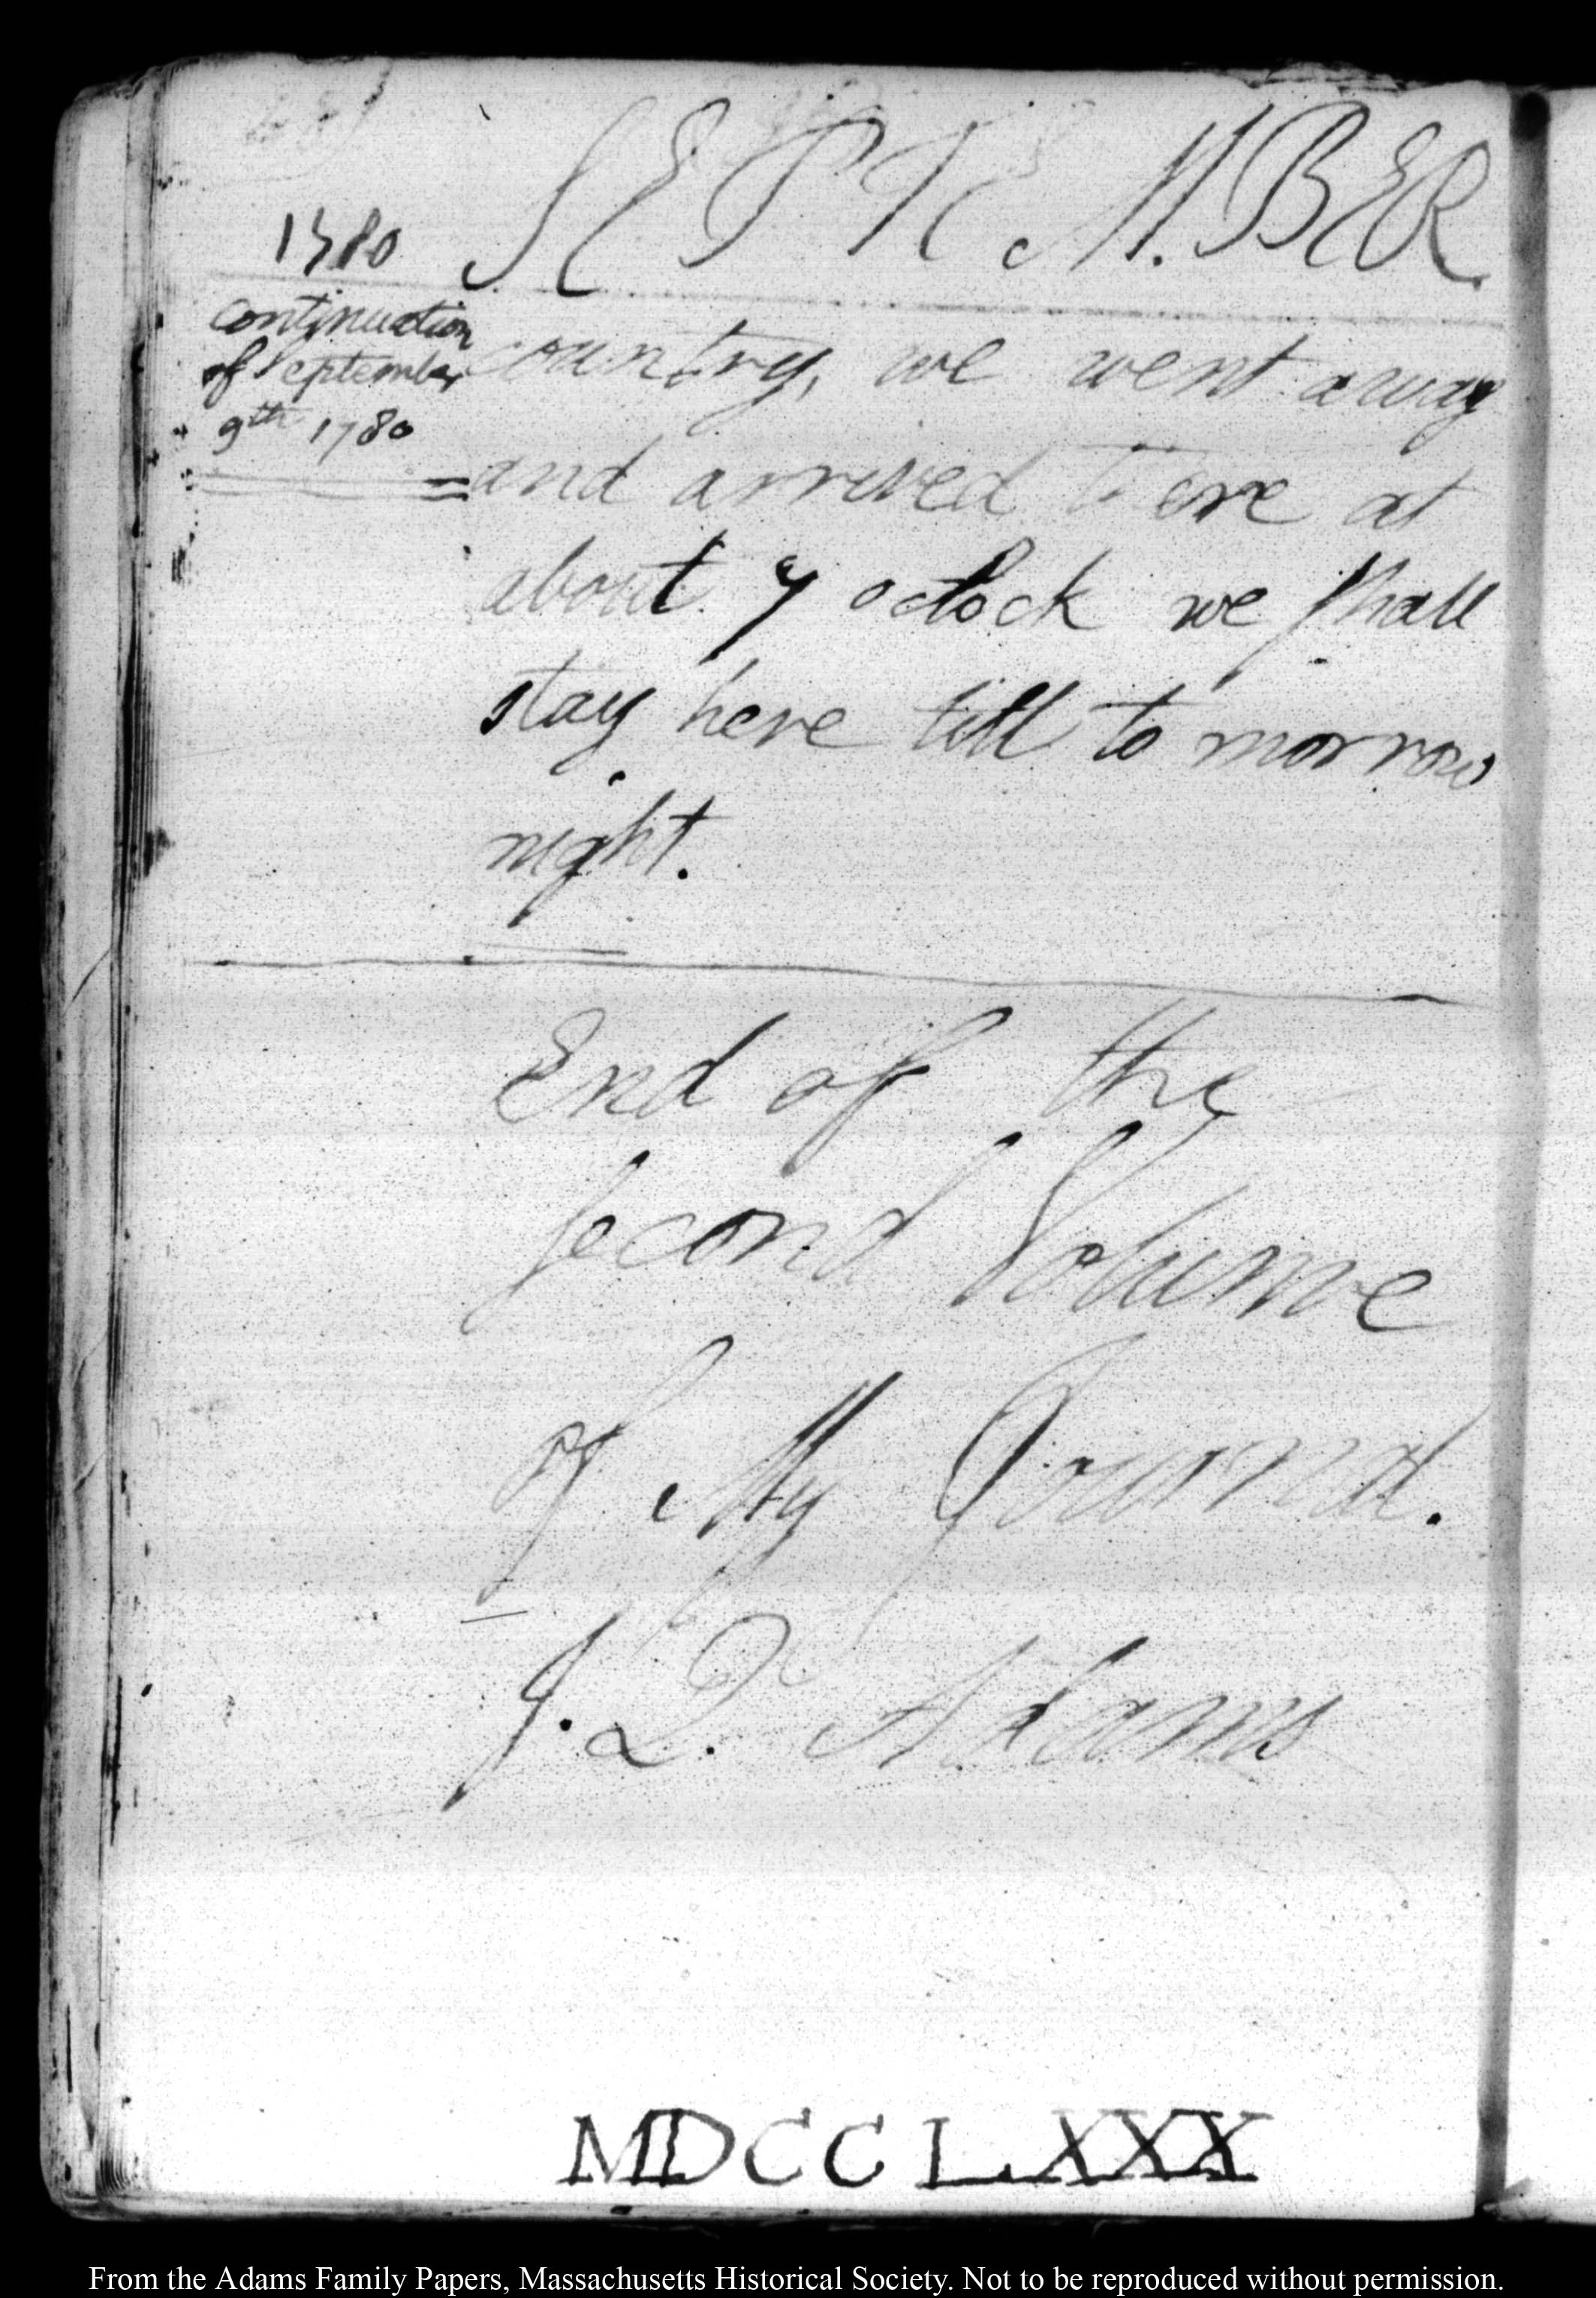 1780 SEPTEMBER
continuation
of September
9th 1780
country, we went away
and arrived here at
about 7 oclock we shall
stay here till to morrow
night.
End of the
second Volume
of My Journal.
J. Q. Adams
MDCCLXXX
From the Adams Family Papers, Massachusetts Historical Society. Not to be reproduced without permission.